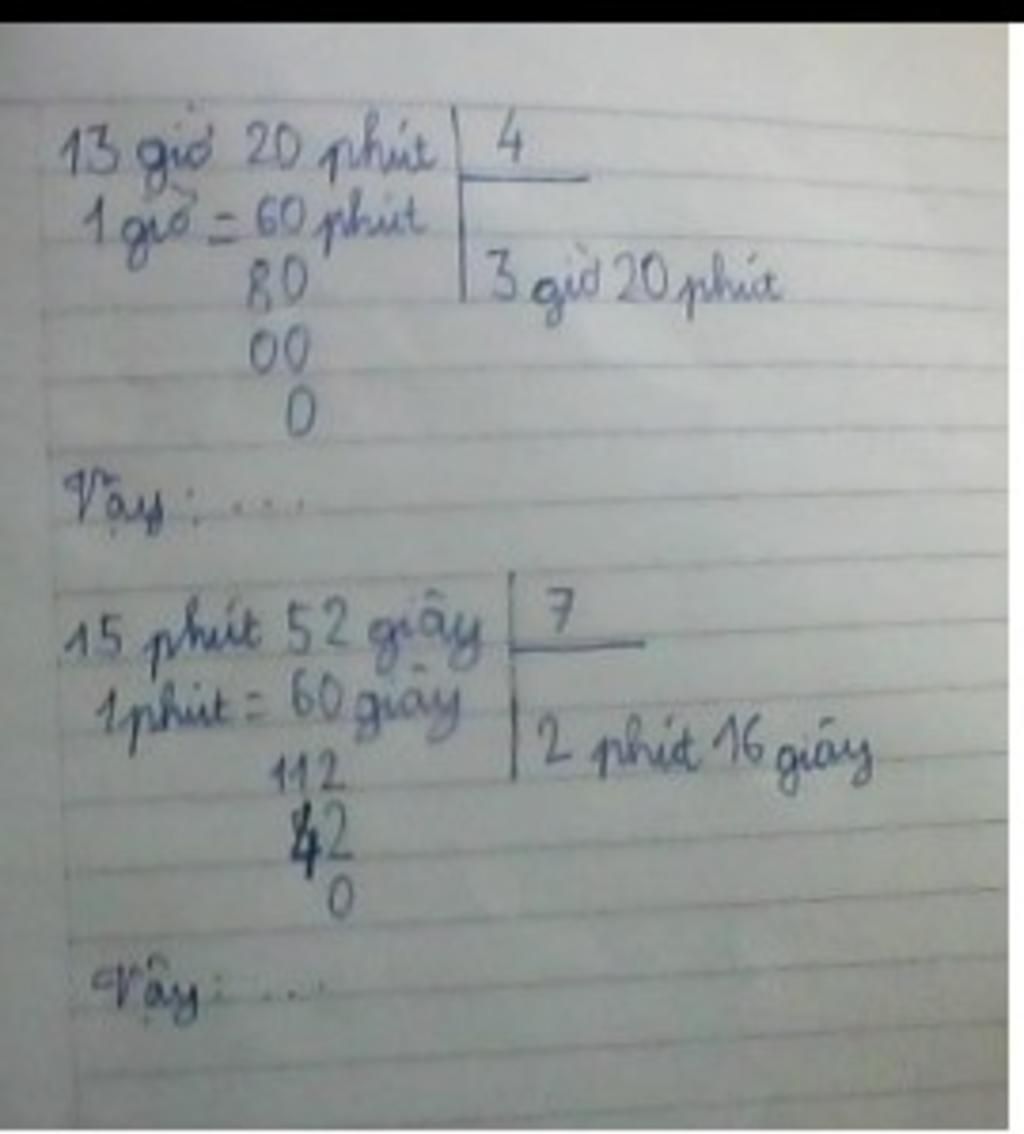 13 giờ 20 phút 4
1 giờ = 60 phút
80 3 giờ 20 phút
00
0
Vậy: ....
15 phút 52 giây 7
1 phút = 60 giây
112 2 phút 16 giây
42
0
Vậy: ....